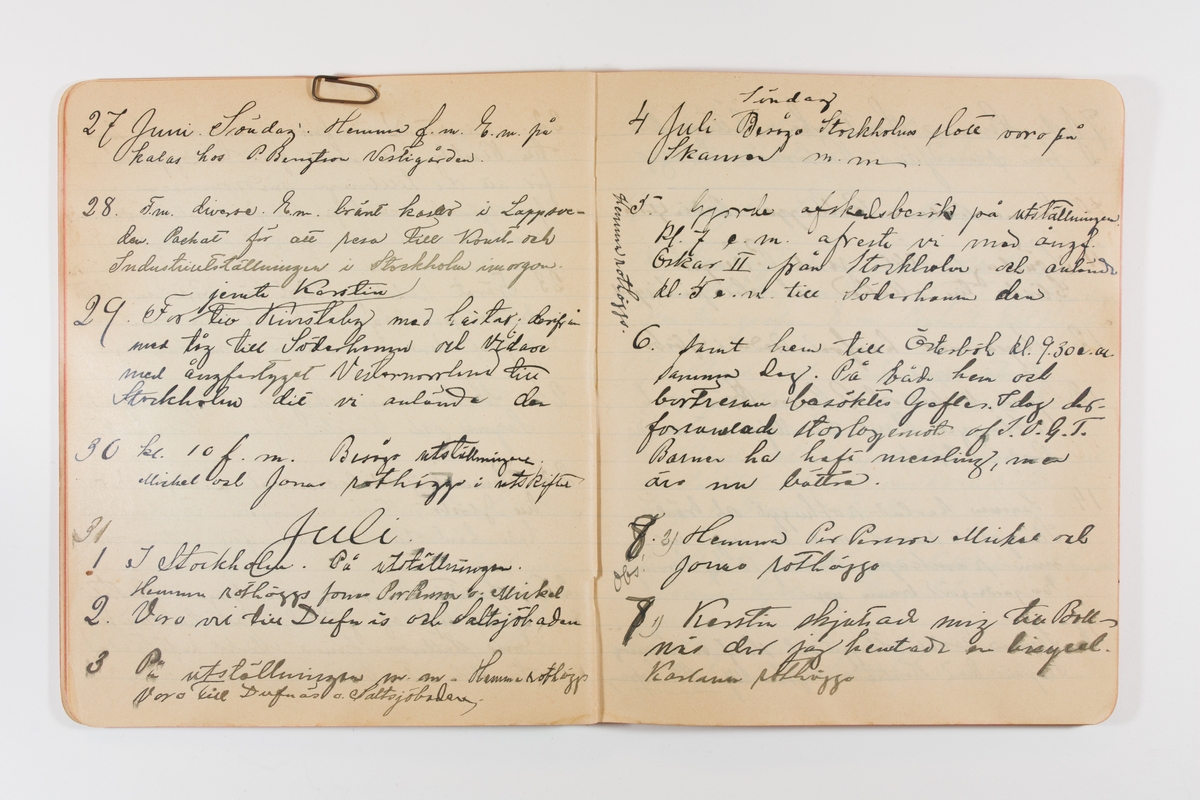 27 Juni. Söndag. Hemma f.m. E.m. på
kalas hos P. Bengtson Vestigården.
28. F.m. diverse. E.m. bränt kaster i Lappsve-
den. Packat för att resa till Konst och
Industriutställningen i Stockholm imorgon.
jemte Karstin
29. For till Kinstaby med hästar; derifrån
med tåg till Söderhamn och vidare
med ångfartyget Vesternorrland till
Stockholm dit vi anlände den
30 kl. 10 f.m. Besågo utställningen.
Mickel och Jonas röthöggo i utskiftet
31
Juli.
1 I Stockholm. På utställningen.
Hemma röthöggs Jonas Per Persson o. Mickel
2. Voro vid till Dufnäs och Saltsjöbaden
3 På utställningen m.m. Hemma röthöggs
Voro till Dufnäs o. Saltsjöbaden,
Söndag
4 Juli Besågo Stockholms slott voro på
Skansen m.m.
Hemma röthöggs.
5. Gjorde afskedsbesök på utställningen
kl. 7 e.m. afreste vi med ångf.
Oskar II från Stockholm och anlände
kl. 5 e.m. till Söderhamn den
6. samt hem till Österböle kl. 9.30 e.m.
samma dag. På både hem och
bortresan besöktes Gefle. I dag der-
församlade storlogemöt af I.O.G.T.
Barnen ha haft messling, men
äro nu bättre.
8. 2) Hemma Per Persson Mickel och
Obs!
Jonas röthöggo
7 1) Kerstin skjutsade mig till Boll-
näs der jag hemtade en bicycel.
Karlarne röthöggo